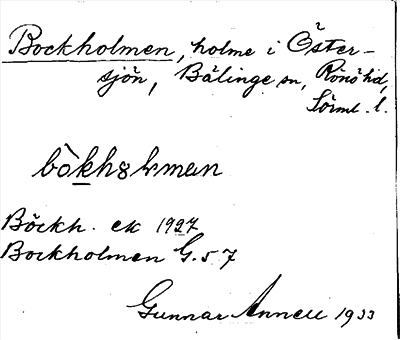 Bockholmen, holme i Öster-
sjön, Bälinge sn, Rönö hd,
Sörml. l.
bòkhålman
Böckh. ek 1927
Bockholmen G. 5 7
Gunnar Annell 1933